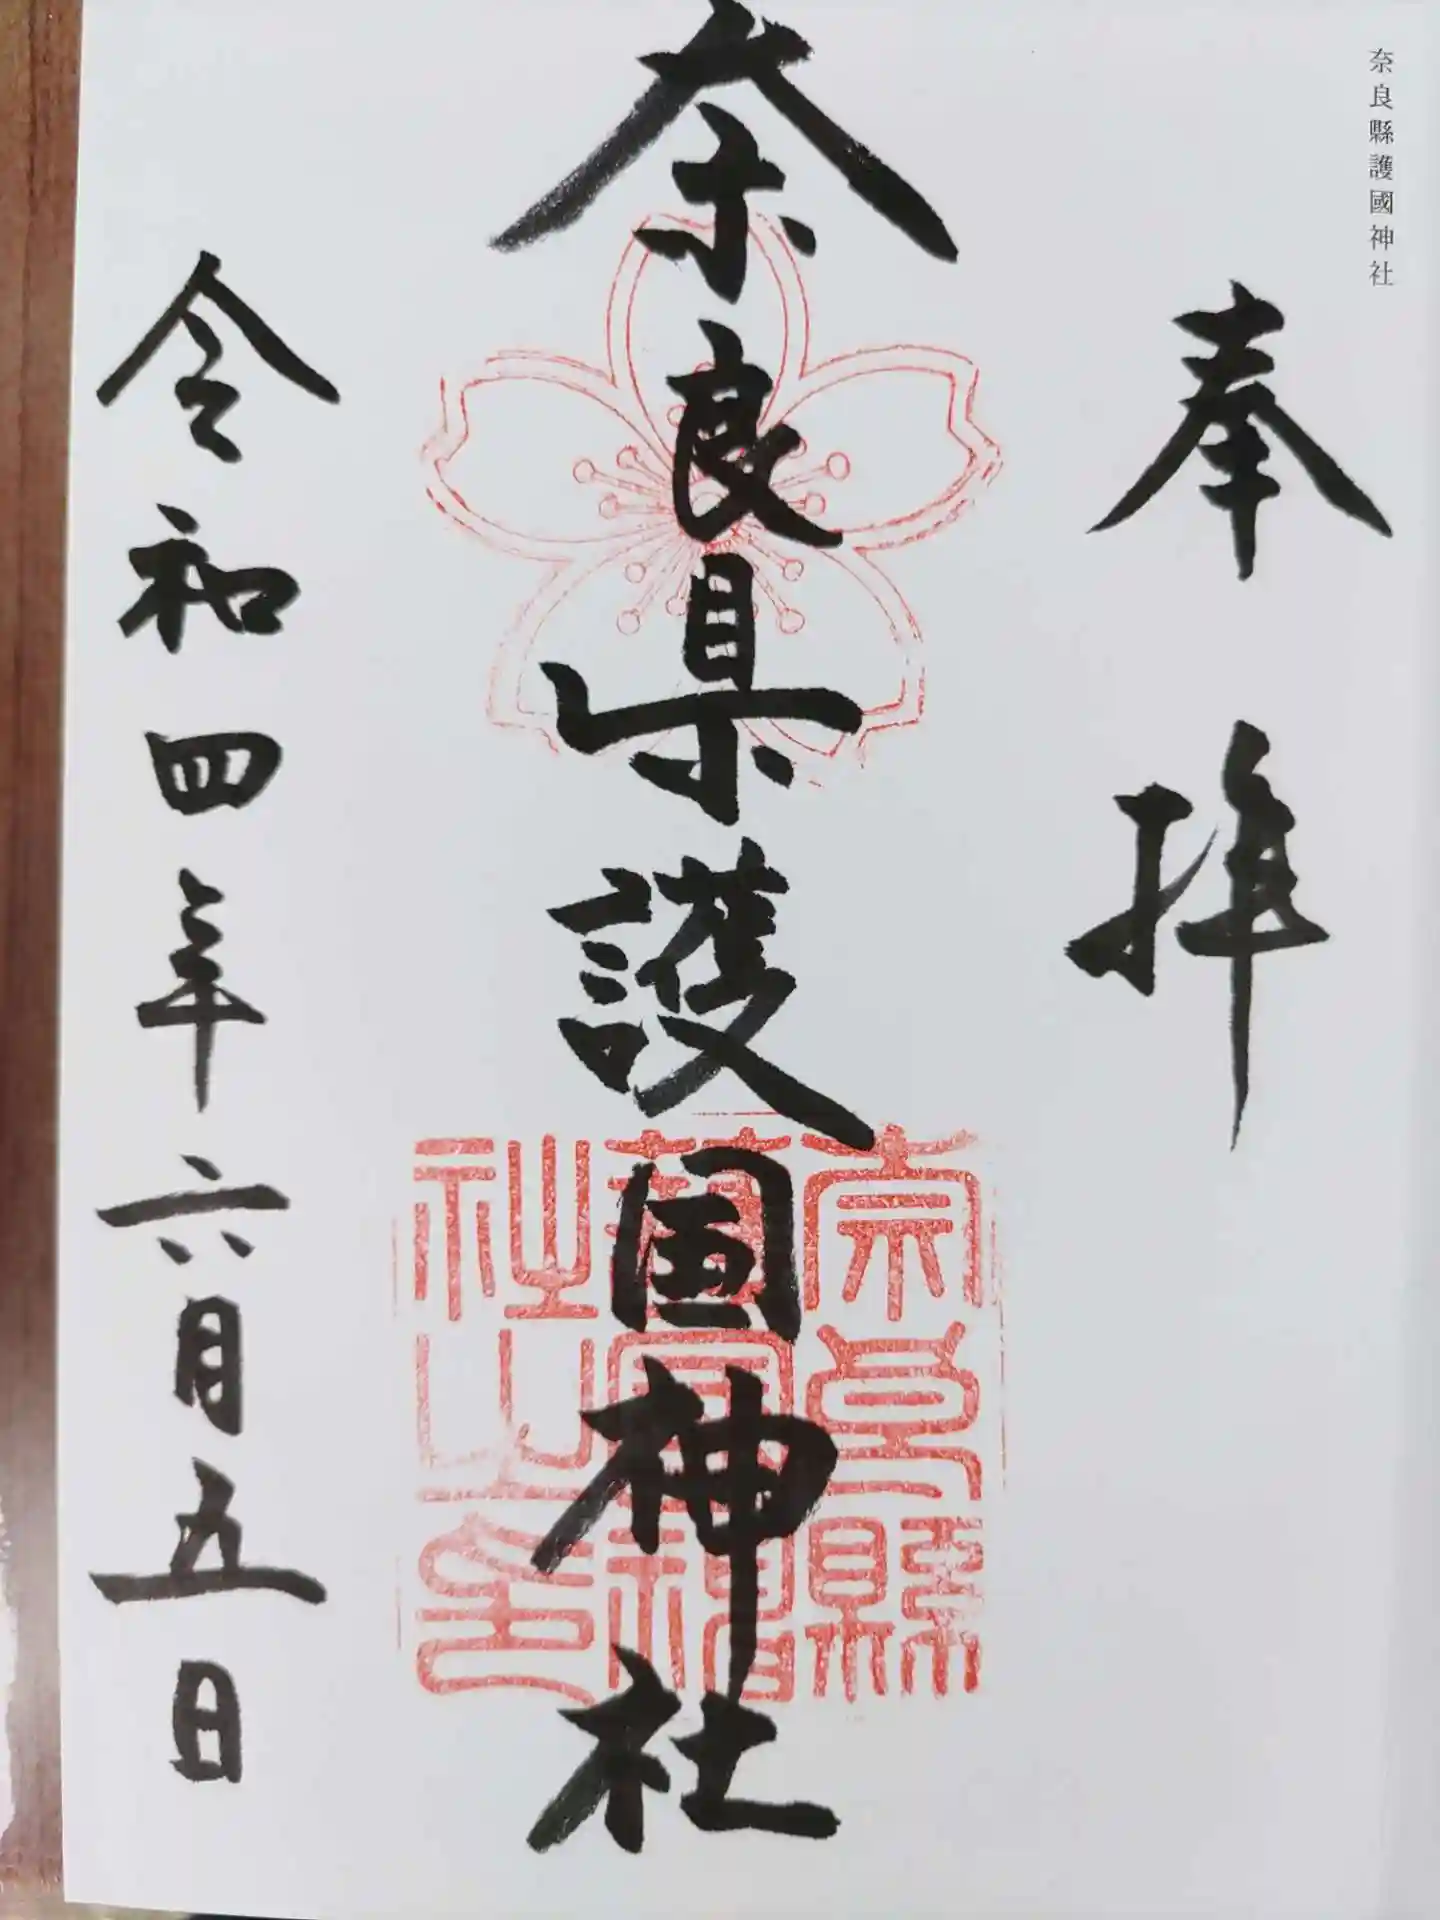 奈良縣護國神社
奉拝
奈良県護国神社
奈良縣護國神社之印
令和四年六月五日